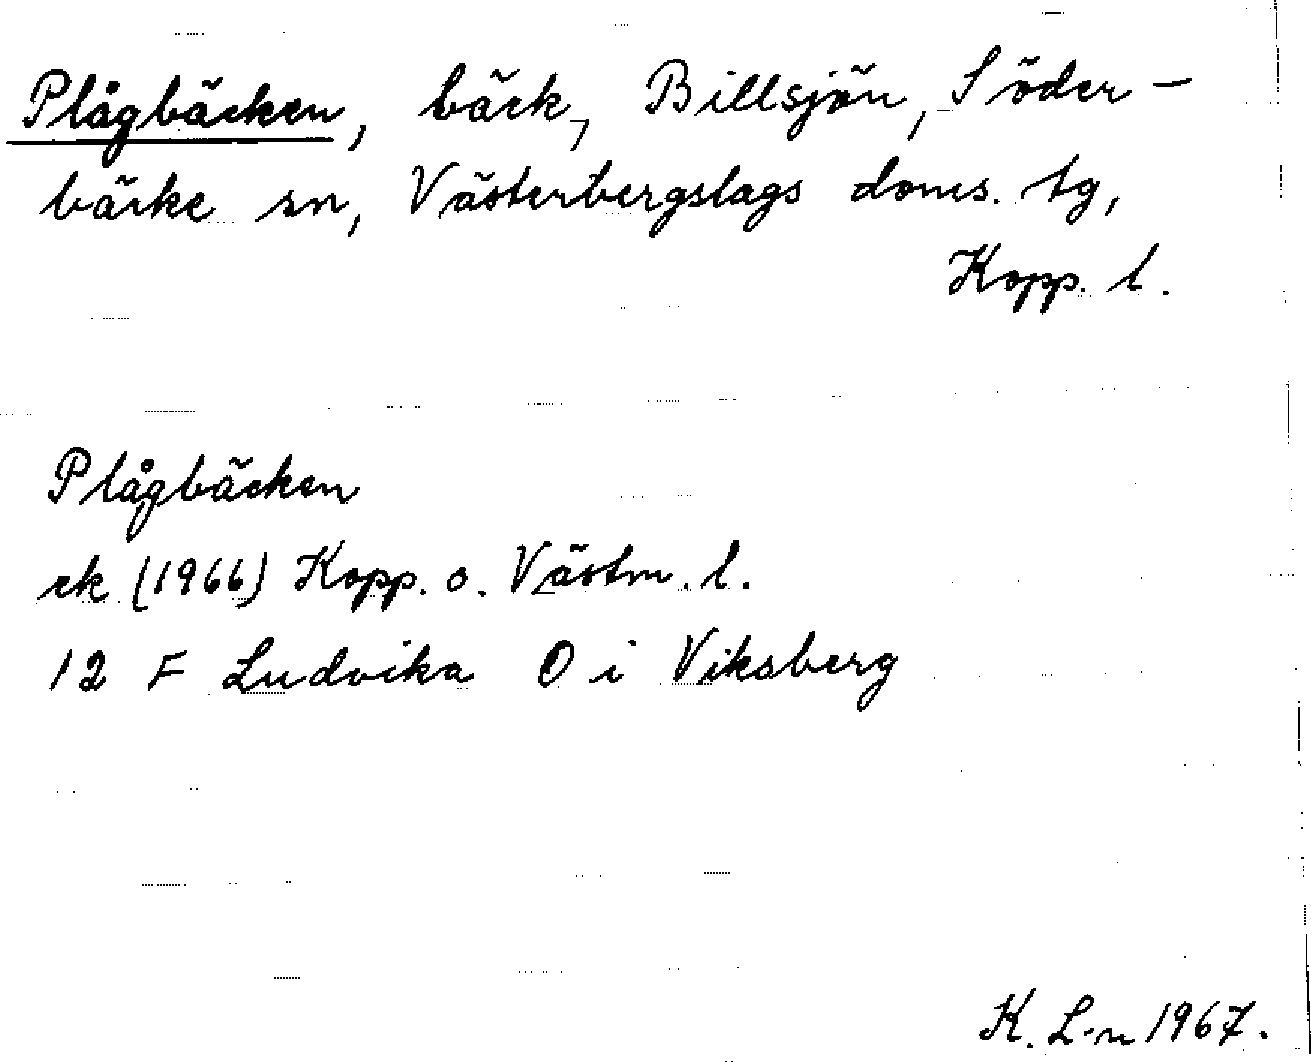 Plågbäcken, bäck, Billsjön, Söder-
bärke sn, Västerbergslags doms. tg,
Kopp. l.
Plågbäcken
ek (1966) Kopp. o. Västm. l.
12 F Ludvika O i Viksberg
K. L-n 1967.